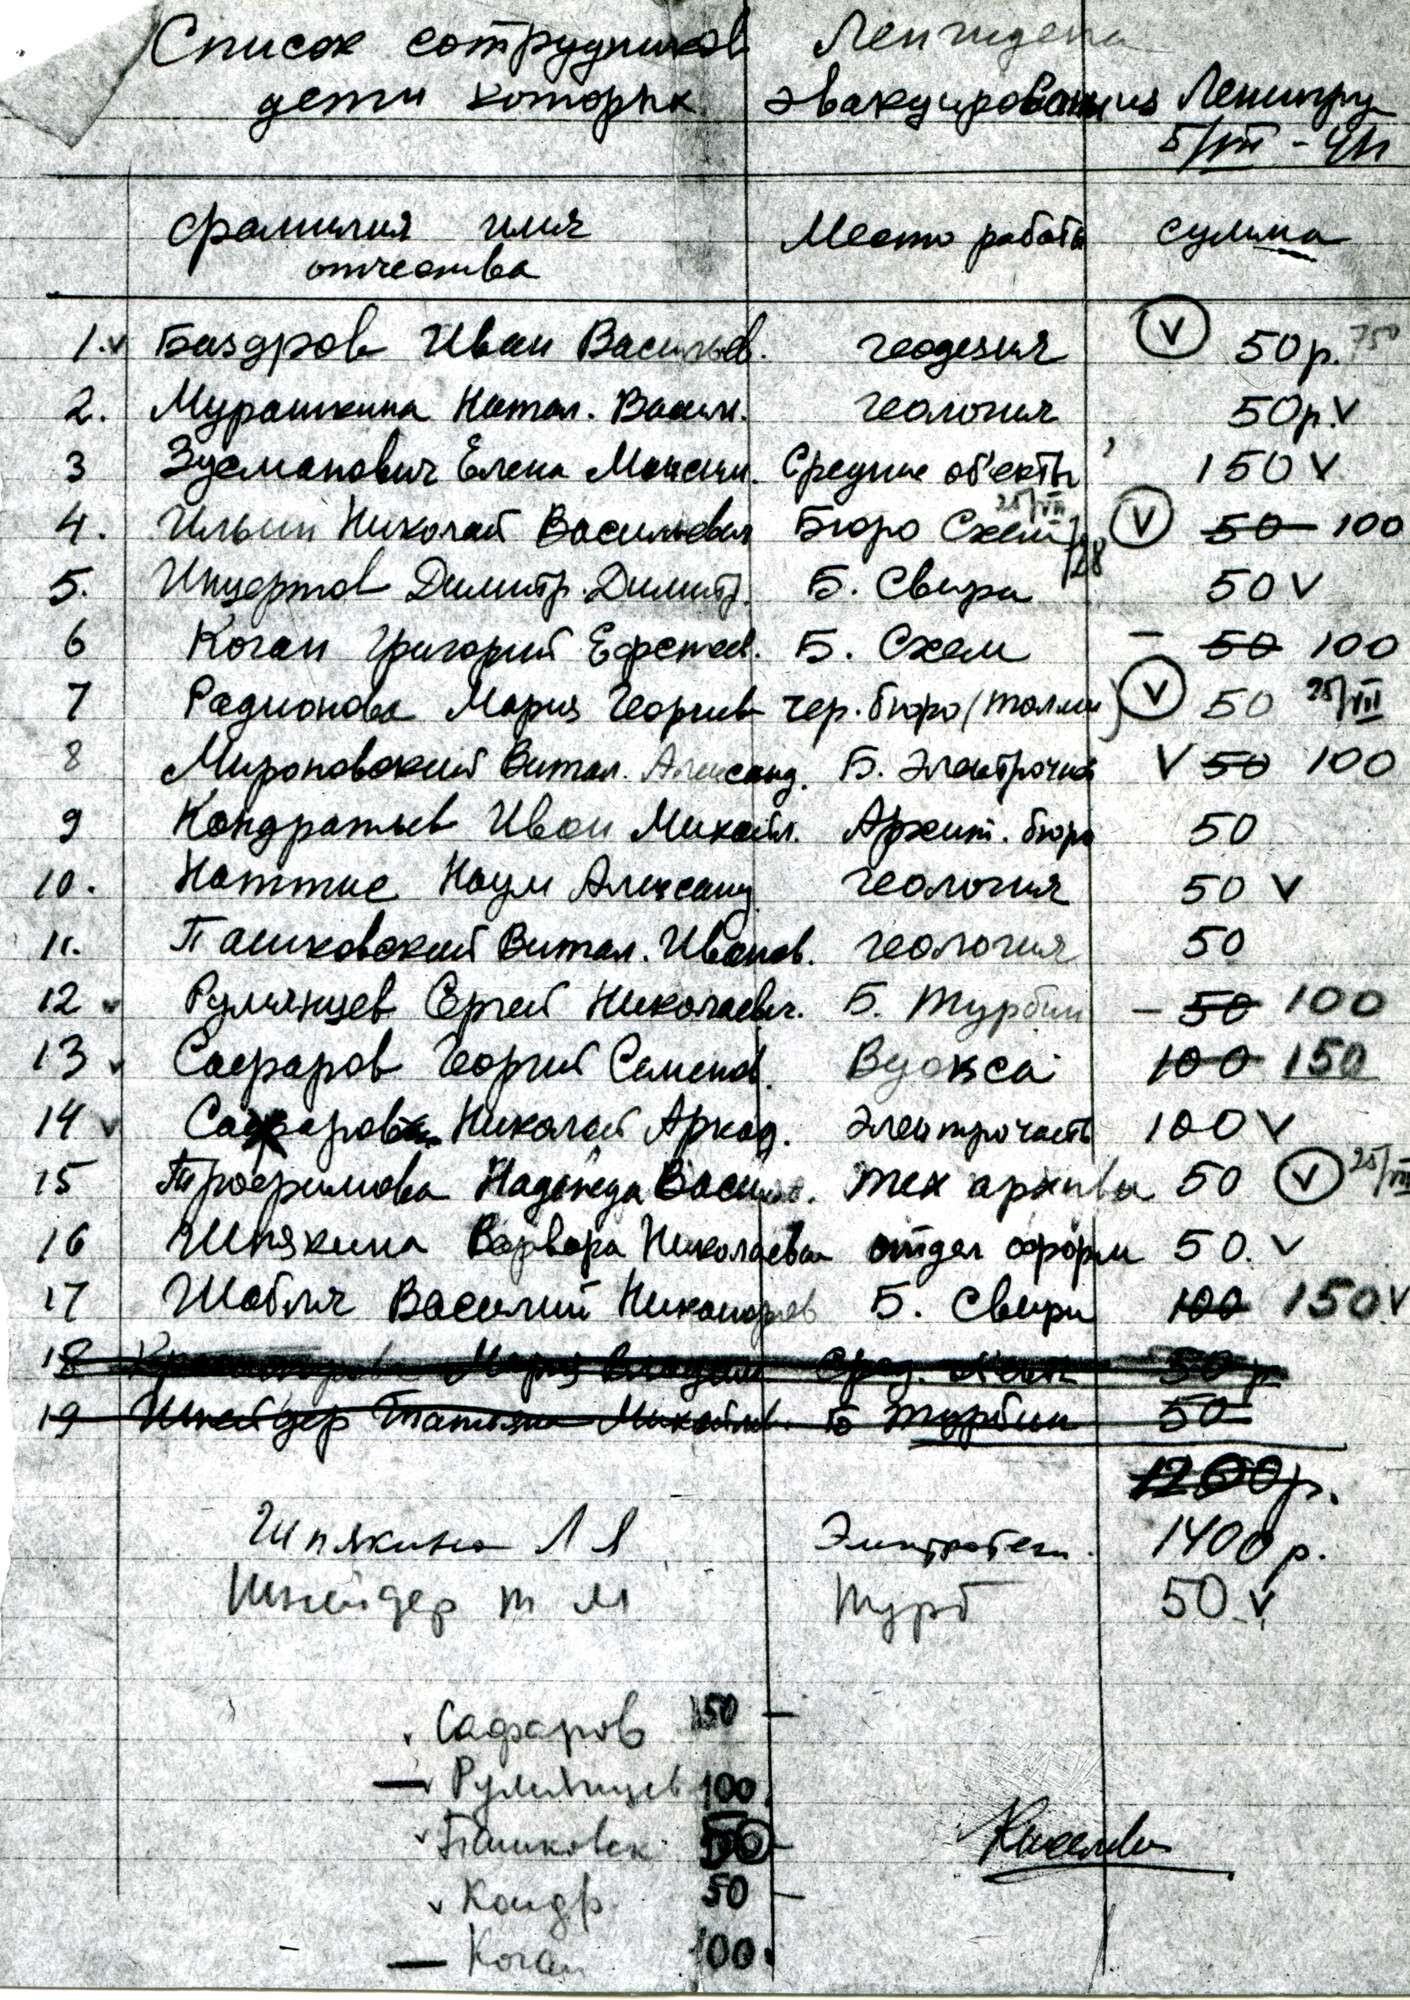 Список сотрудников Ленгидепа
дети которых эвакуированы из Ленингр
5/VIII - 41
фамилия имя Место работы сумма
отчества
1. v Баздров Иван Васильев. геодезия V 50 р. 750
2. Мурашкина Натал. Васил. геология 50р. V
3 Зусманович Елена Моисеи. Средние об'екты 150 V
25/VIII
4. Ильин Николай Васильевич Бюро Схем V 50 100
5. Димитр. Димитр. Б. Свири 50 V
6 Коган Григорий Б. Схем – 50 100
7 Радионова Мария Георгиев чер. бюро V 50 25/VIII
8 Мироновский Витал. Александ. Б. Электрочаст V 50 100
9 Кондратьев Иван Михайл. Архит. бюро 50
10. Наттис Наум Александ геология 50 V
11. Пашковский Витал. Иванов. геология 50
12 v Румянцев Сергей Николаевич. Б. Турбин – 50 100
13 v Сафаров Георгий Семенов. Вуокса 100 150
14 v Николай Аркад. Электрочасть 100 V
15 Трофимова Надежда Васильев. тех архива 50 V 25/VIII
16 Шпякина Варвара Николаевна отдел оформ 50. V
17 Шабля Василий Никаноров Б. Свири 100 150 V
18 Мария 50 р
19 Шнейдер Татьяна Михайлов. Б Турбин 50
1200 р.
Шпякина Л Я 1400 р.
Шнейдер Т М Турб 50 V
v Сафаров 150 –
– v Румянцев 100.
v Пашковск. 50 –
v Кондр. 50 –
– Коган 100.